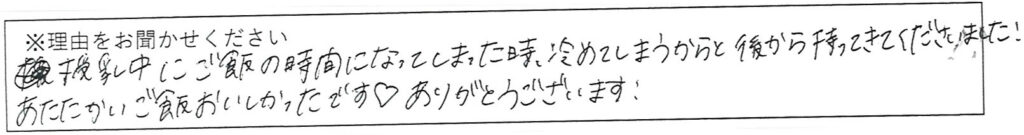 ※理由をお聞かせください
授乳中にご飯の時間になってしまった時、冷めてしまうからと後から持ってきてくださいました!
あたたかいご飯おいしかったです♡ ありがとうございます!